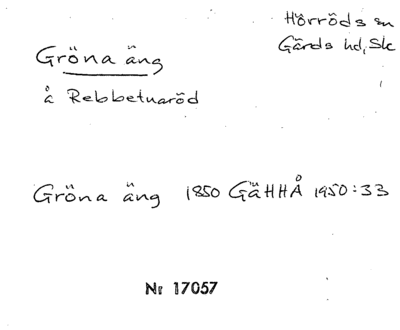 Hörröds sn
Gärds hd, Sk
Gröna äng
å Rebbetuaröd
Gröna äng 1850 GÄHHÅ 1950:33
Nr 17057